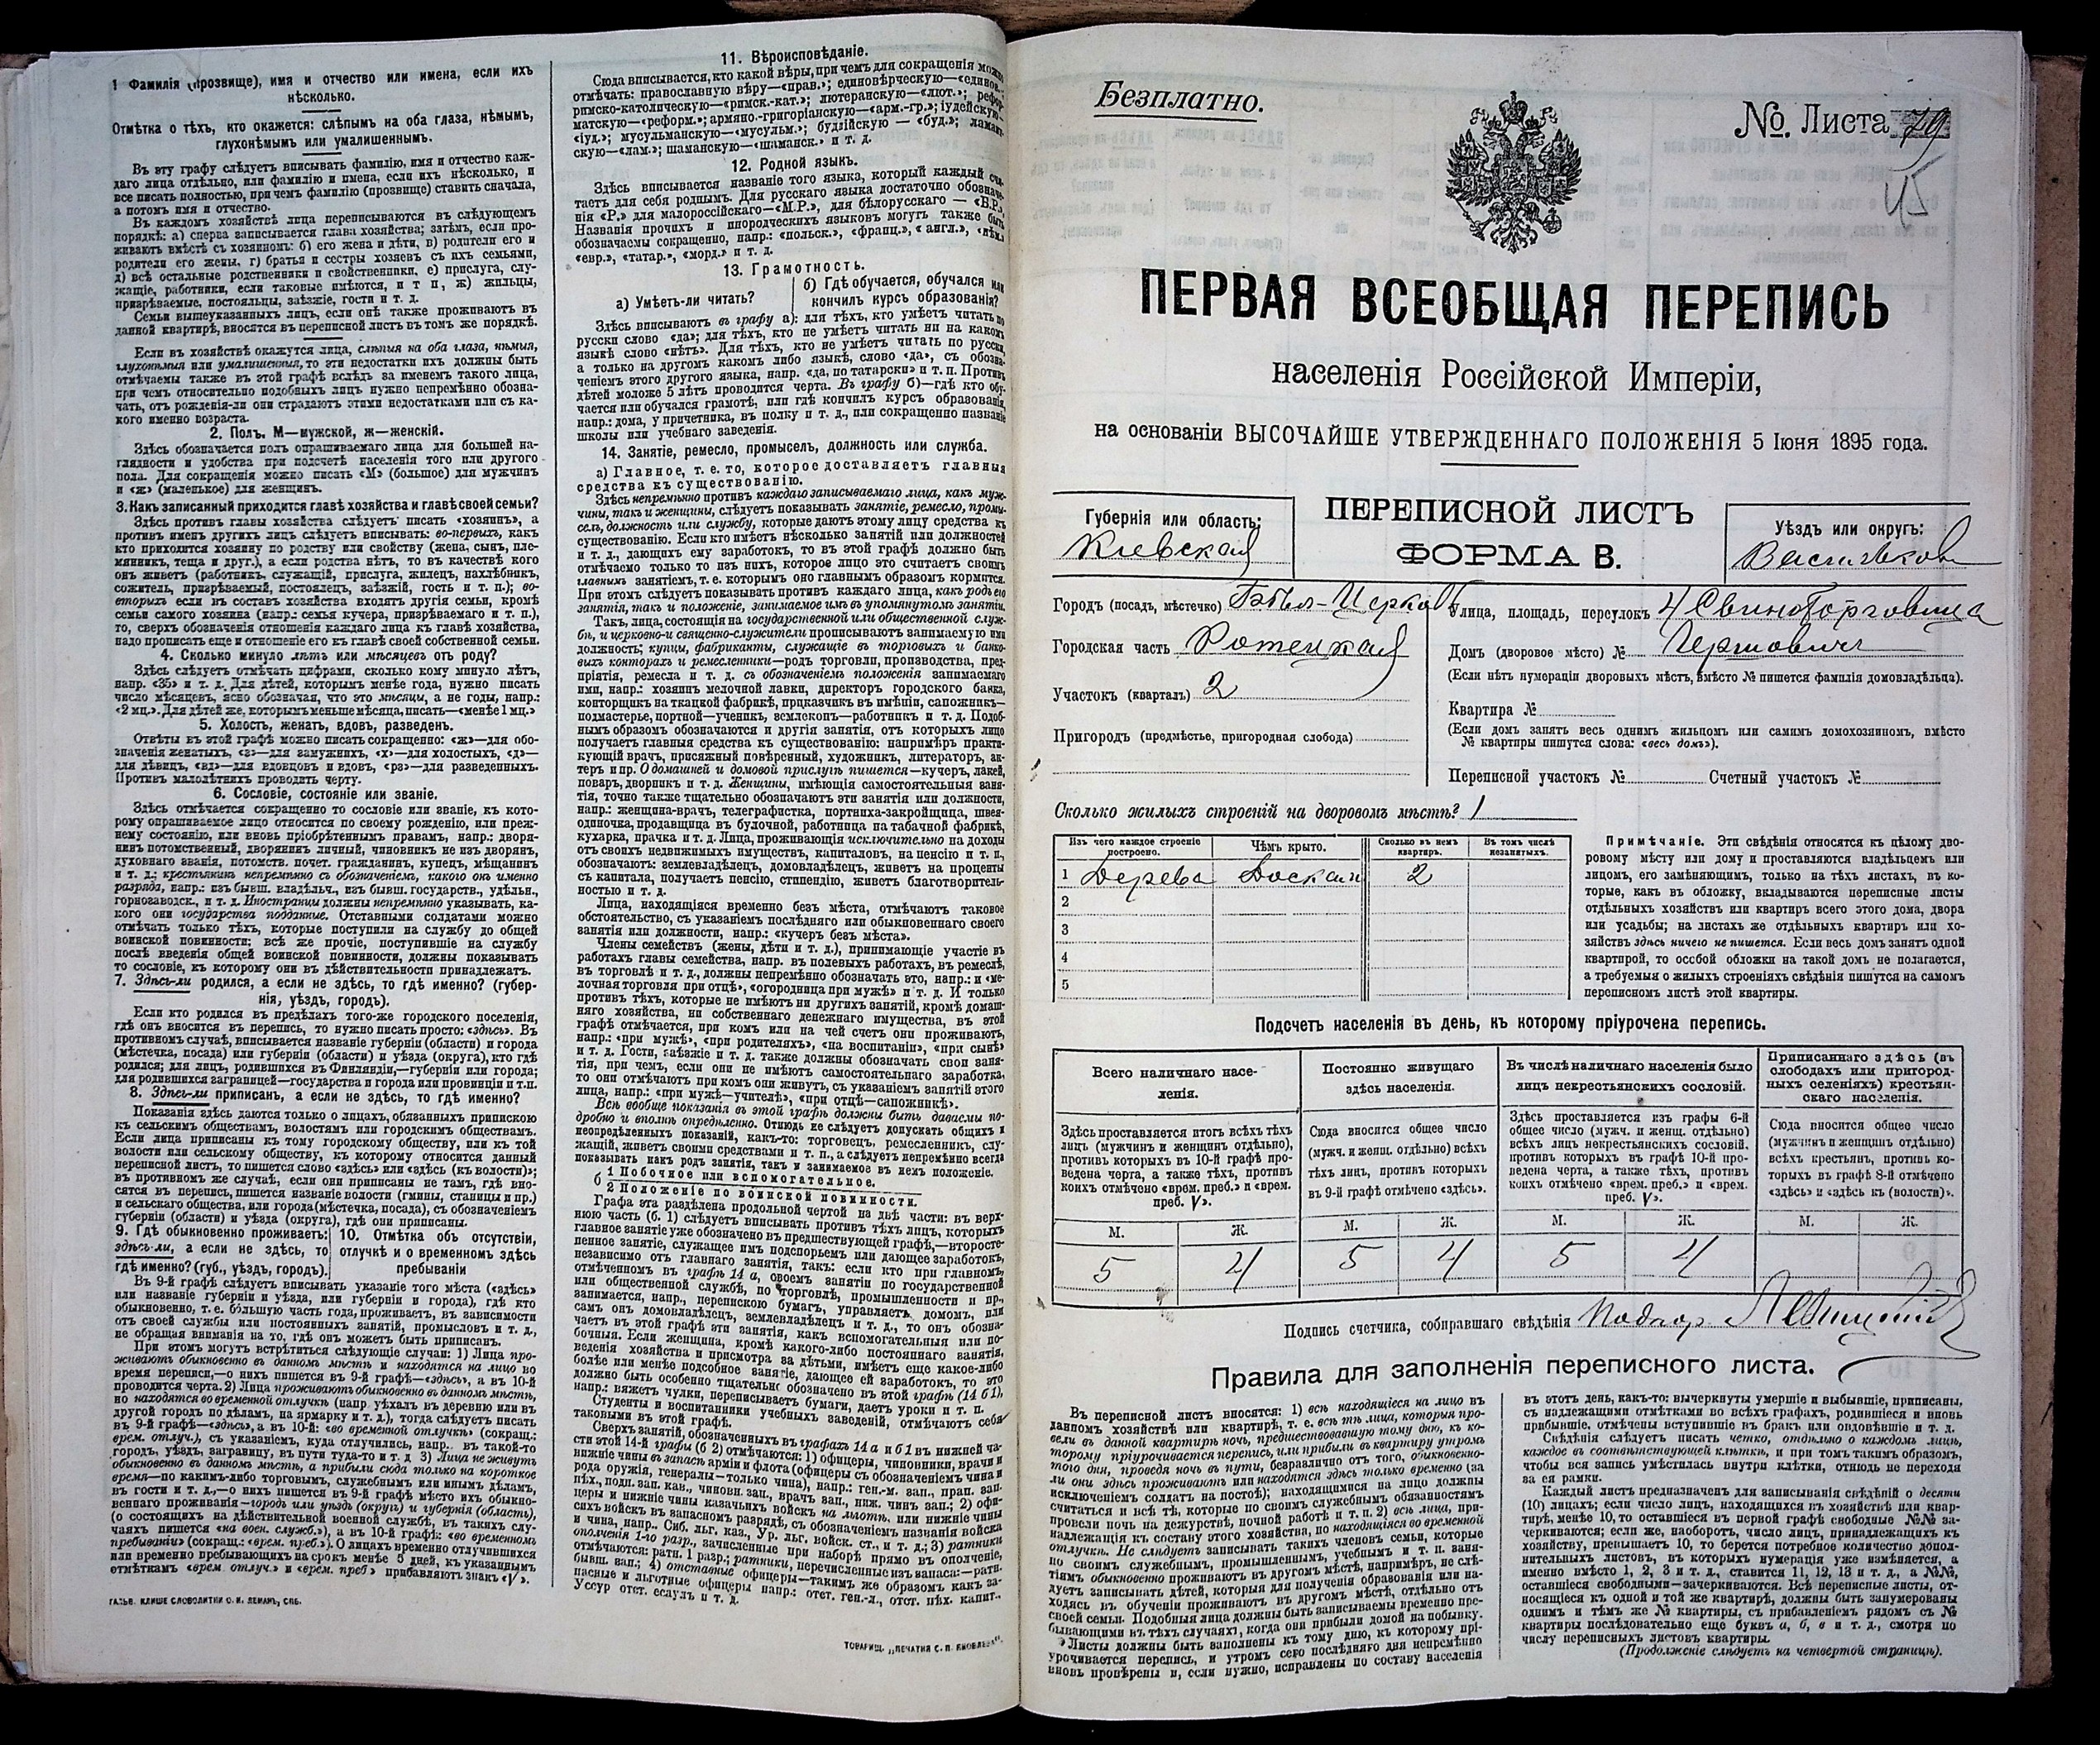 1 Фамилія (прозвище), имя и отчество или имена, если ихъ
нѣсколько.
Отмѣтка о тѣхъ, кто окажется: слѣпымъ на оба глаза, нѣмымъ,
глухонѣмымъ или умалишеннымъ.
Въ эту графу слѣдуетъ вписывать фамилію, имя и отчество каж-
даго лица отдѣльно, или фамилію и имена, если ихъ нѣсколько, и
все писать полностью, при чемъ фамилію (прозвище) ставить сначала,
а потомъ имя и отчество.
Въ каждомъ хозяйствѣ лица переписываются въ слѣдующемъ
порядкѣ: а) сперва записывается глава хозяйства; затѣмъ, если про-
живаютъ вмѣстѣ съ хозяиномъ: б) его жена и дѣти, в) родители его и
родители его жены, г) братья и сестры хозяевъ съ ихъ семьями,
д) всѣ остальные родственники и свойственники, е) прислуга, слу-
жащіе, работники, если таковые имѣются, и т п, ж) жильцы,
призрѣваемые, постояльцы, заѣзжіе, гости и т. д.
Семьи вышеуказанныхъ лицъ, если онѣ также проживаютъ въ
данной квартирѣ, вносятся въ переписной листъ въ томъ же порядкѣ.
Если въ хозяйствѣ окажутся лица, слѣпыя на оба глаза, нѣмыя,
глухонѣмыя или умалишенныя, то эти недостатки ихъ должны быть
отмѣчаемы также въ этой графѣ вслѣдъ за именемъ такого лица,
при чемъ относительно подобныхъ лицъ нужно непремѣнно обозна-
чать, отъ рожденія-ли они страдаютъ этими недостатками или съ ка-
кого именно возраста.
2. Полъ. М—мужской, ж—женскій.
Здѣсь обозначается полъ опрашиваемаго лица для большей на-
глядности и удобства при подсчетѣ населенія того или другого
пола. Для сокращенія можно писать «М» (большое) для мужчинъ
и «ж» (маленькое) для женщинъ.
3. Какъ записанный приходится главѣ хозяйства и главѣ своей семьи?
Здѣсь противъ главы хозяйства слѣдуетъ писать «хозяинъ», а
противъ именъ другихъ лицъ слѣдуетъ вписывать: во-первыхъ, какъ
кто приходится хозяину по родству или свойству (жена, сынъ, пле-
мянникъ, теща и друг.), а если родства нѣтъ, то въ качествѣ кого
онъ живетъ (работникъ, служащій, прислуга, жилецъ, нахлѣбникъ,
сожитель, призрѣваемый, постоялецъ, заѣзжій, гость и т. п.); во-
вторыхъ если въ составъ хозяйства входятъ другія семьи, кромѣ
семьи самого хозяина (напр.: семья кучера, призрѣваемаго и т. п.),
то, сверхъ обозначенія отношенія каждаго лица къ главѣ хозяйства,
надо прописать еще и отношеніе его къ главѣ своей собственной семьи.
4. Сколько минуло лѣтъ или мѣсяцевъ отъ роду?
Здѣсь слѣдуетъ отмѣчать цифрами, сколько кому минуло лѣтъ,
напр. «35» и т. д. Для дѣтей, которымъ менѣе года, нужно писать
число мѣсяцевъ, ясно обозначая, что это мѣсяцы, а не годы, напр.:
«2 мц.». Для дѣтей же, которымъ меньше мѣсяца, писать—«менѣе 1 мц.»
5. Холостъ, женатъ, вдовъ, разведенъ.
Отвѣты въ этой графѣ можно писать сокращенно: «ж»—для обо-
значенія женатыхъ, «з»—для замужнихъ, «х»—для холостыхъ, «д»—
для дѣвицъ, «вд»—для вдовцовъ и вдовъ, «рз»—для разведенныхъ.
Противъ малолѣтнихъ проводить черту.
6. Сословіе, состояніе или званіе.
Здѣсь отмѣчается сокращенно то сословіе или званіе, къ кото-
рому опрашиваемое лицо относится по своему рожденію, или преж-
нему состоянію, или вновь пріобрѣтеннымъ правамъ, напр.: дворя-
нинъ потомственный, дворянинъ личный, чиновникъ не изъ дворянъ,
духовнаго званія, потомств. почет. гражданинъ, купецъ, мѣщанинъ
и т. д.; крестьянинъ непремѣнно съ обозначеніемъ, какого онъ именно
разряда, напр.: изъ бывш. владѣльч., изъ бывш. государств., удѣльн.,
горнозаводск., и т. д. Иностранцы должны непремѣнно указывать, ка-
кого они государства подданные. Отставными солдатами можно
отмѣчать только тѣхъ, которые поступили на службу до общей
воинской повинности; всѣ же прочіе, поступившіе на службу
послѣ введенія общей воинской повинности, должны показывать
то сословіе, къ которому они въ дѣйствительности принадлежатъ.
7. Здѣсь-ли родился, а если не здѣсь, то гдѣ именно? (губер-
нія, уѣздъ, городъ).
Если кто родился въ предѣлахъ того-же городского поселенія,
гдѣ онъ вносится въ перепись, то нужно писать просто: «здѣсь». Въ
противномъ случаѣ, вписывается названіе губерніи (области) и города
(мѣстечка, посада) или губерніи (области) и уѣзда (округа), кто гдѣ
родился; для лицъ, родившихся въ Финляндіи,—губерніи или города;
для родившихся заграницей—государства и города или провинціи и т.п.
8. Здѣсь-ли приписанъ, а если не здѣсь, то гдѣ именно?
Показанія здѣсь даются только о лицахъ, обязанныхъ припискою
къ сельскимъ обществамъ, волостямъ или городскимъ обществамъ.
Если лица приписаны къ тому городскому обществу, или къ той
волости или сельскому обществу, къ которому относится данный
переписной листъ, то пишется слово «здѣсь» или «здѣсь (къ волости)»;
въ противномъ же случаѣ, если они приписаны не тамъ, гдѣ вно-
сятся въ перепись, пишется названіе волости (гмины, станицы и пр.)
и сельскаго общества, или города (мѣстечка, посада), съ обозначеніемъ
губерніи (области) и уѣзда (округа), гдѣ они приписаны.
9. Гдѣ обыкновенно проживаетъ: здѣсь-ли, а если не здѣсь, то гдѣ именно? (губ., уѣздъ, городъ).
10. Отмѣтка объ отсутствіи, отлучкѣ и о временномъ здѣсь пребываніи
Въ 9-й графѣ слѣдуетъ вписывать указаніе того мѣста («здѣсь»
или названіе губерніи и уѣзда, или губерніи и города), гдѣ кто
обыкновенно, т. е. бо́льшую часть года, проживаетъ, въ зависимости
отъ своей службы или постоянныхъ занятій, промысловъ и т. д.,
не обращая вниманія на то, гдѣ онъ можетъ быть приписанъ.
При этомъ могутъ встрѣтиться слѣдующіе случаи: 1) Лица про-
живаютъ обыкновенно въ данномъ мѣстѣ и находятся на лицо во
время переписи,—о нихъ пишется въ 9-й графѣ—«здѣсь», а въ 10-й
проводится черта. 2) Лица проживаютъ обыкновенно въ данномъ мѣстѣ,
но находятся во временной отлучкѣ (напр. уѣхалъ въ деревню или въ
другой городъ по дѣламъ, на ярмарку и т. д.), тогда слѣдуетъ писать
въ 9-й графѣ—«здѣсь», а въ 10-й: «во временной отлучкѣ» (сокращ.:
врем. отлуч.»), съ указаніемъ, куда отлучились, напр. въ такой-то
городъ, уѣздъ, заграницу, въ пути туда-то и т. д 3) Лица не живутъ
обыкновенно въ данномъ мѣстѣ, а прибыли сюда только на короткое
время—по какимъ-либо торговымъ, служебнымъ или инымъ дѣламъ,
въ гости и т. д.,—о нихъ пишется въ 9-й графѣ мѣсто ихъ обыкно-
веннаго проживанія—городъ или уѣздъ (округъ) и губернія (область),
(о состоящихъ на дѣйствительной военной службѣ, въ такихъ слу-
чаяхъ пишется «на воен. служб.»), а въ 10-й графѣ: «во временномъ
пребываніи» (сокращ.: «врем. преб.»). О лицахъ временно отлучившихся
или временно пребывающихъ на срокъ менѣе 5 дней, къ указаннымъ
отмѣткамъ «врем. отлуч.» и «врем. преб» прибавляютъ знакъ «V».
ГАЛЬВ. КЛИШЕ СЛОВОЛИТНИ О. И. ЛЕМАНЪ, СПБ.
11. Вѣроисповѣданіе.
Сюда вписывается, кто какой вѣры, при чемъ для сокращенія можно
отмѣчать: православную вѣру—«прав.»; единовѣрческую—«единов.»;
римско-католическую—«римск.-кат.»; лютеранскую—«лют.»; рефор-
матскую—«реформ.»; армяно.-григоріанскую—«арм.-гр.»; іудейскую—
«іуд.»; мусульманскую—«мусульм.»; буддійскую — «буд.»; ламай-
скую—«лам.»; шаманскую—«шаманск.» и т. д.
12. Родной языкъ.
Здѣсь вписывается названіе того языка, который каждый счи-
таетъ для себя роднымъ. Для русскаго языка достаточно обозначе-
нія «Р.» для малороссійскаго—«М.Р.», для бѣлорусскаго — «Б.Р.»,
Названія прочихъ и инородческихъ языковъ могутъ также быть
обозначаемы сокращенно, напр.: «польск.», «франц.», « англ.», «нѣм.»
«евр.», «татар.», «морд.» и т. д.
13. Грамотность.
а) Умѣетъ-ли читать?
б) Гдѣ обучается, обучался или кончилъ курсъ образованія?
Здѣсь вписываютъ въ графу а): для тѣхъ, кто умѣетъ читать по
русски слово «да»; для тѣхъ, кто не умѣетъ читать ни на какомъ
языкѣ слово «нѣтъ». Для тѣхъ, кто не умѣетъ читать по русски,
а только на другомъ какомъ либо языкѣ, слово «да», съ обозна-
ченіемъ этого другого языка, напр. «да, по татарски» и т. п. Противъ
дѣтей моложе 5 лѣтъ проводится черта. Въ графу б)—гдѣ кто обу-
чается или обучался грамотѣ, или гдѣ кончилъ курсъ образованія,
напр.: дома, у причетника, въ полку и т. д., или сокращенно названіе
школы или учебнаго заведенія.
14. Занятіе, ремесло, промыселъ, должность или служба.
а) Главное, т. е. то, которое доставляетъ главныя
средства къ существованію.
Здѣсь непремѣнно противъ каждаго записываемаго лица, какъ муж-
чины, такъ и женщины, слѣдуетъ показывать занятіе, ремесло, промы-
селъ, должность или службу, которые даютъ этому лицу средства къ
существованію. Если кто имѣетъ нѣсколько занятій или должностей
и т. д., дающихъ ему заработокъ, то въ этой графѣ должно быть
отмѣчаемо только то изъ нихъ, которое лицо это считаетъ своимъ
главнымъ занятіемъ, т. е. которымъ оно главнымъ образомъ кормится.
При этомъ слѣдуетъ показывать противъ каждаго лица, какъ родъ его
занятія, такъ и положеніе, занимаемое имъ въ упомянутомъ занятіи.
Такъ, лица, состоящія на государственной или общественной служ-
бѣ, и церковно-и священно-служители прописываютъ занимаемую ими
должность; купцы, фабриканты, служащіе въ торговыхъ и банко-
выхъ конторахъ и ремесленники—родъ торговли, производства, пред-
пріятія, ремесла и т. д. съ обозначеніемъ положенія занимаемаго
ими, напр.: хозяинъ мелочной лавки, директоръ городского банка,
конторщикъ на ткацкой фабрикѣ, приказчикъ въ имѣніи, сапожникъ—
подмастерье, портной—ученикъ, землекопъ—работникъ и т. д. Подоб-
нымъ образомъ обозначаются и другія занятія, отъ которыхъ лицо
получаетъ главныя средства къ существованію: напримѣръ практи-
кующій врачъ, присяжный повѣренный, художникъ, литераторъ, ак-
теръ и пр. О домашней и домовой прислугѣ пишется—кучеръ, лакей,
поваръ, дворникъ и т. д. Женщины, имѣющія самостоятельныя заня-
тія, точно также тщательно обозначаютъ эти занятія или должности,
напр.: женщина-врачъ, телеграфистка, портниха-закройщица, швея-
одиночка, продавщица въ булочной, работница на табачной фабрикѣ,
кухарка, прачка и т. д. Лица, проживающія исключительно на доходы
отъ своихъ недвижимыхъ имуществъ, капиталовъ, на пенсію и т. п.,
обозначаютъ: землевладѣлецъ, домовладѣлецъ, живетъ на проценты
съ капитала, получаетъ пенсію, стипендію, живетъ благотворитель-
ностью и т. д.
Лица, находящіяся временно безъ мѣста, отмѣчаютъ таковое
обстоятельство, съ указаніемъ послѣдняго или обыкновеннаго своего
занятія или должности, напр.: «кучеръ безъ мѣста».
Члены семействъ (жены, дѣти и т. д.), принимающіе участіе въ
работахъ главы семейства, напр. въ полевыхъ работахъ, въ ремеслѣ,
въ торговлѣ и т. д., должны непремѣнно обозначать это, напр.: и «ме-
лочная торговля при отцѣ», «огородница при мужѣ» и т. д. И только
противъ тѣхъ, которые не имѣютъ ни другихъ занятій, кромѣ домаш-
няго хозяйства, ни собственнаго денежнаго имущества, въ этой
графѣ отмѣчается, при комъ или на чей счетъ они проживаютъ,
напр.: «при мужѣ», «при родителяхъ», «на воспитаніи», «при сынѣ»
и т. д. Гости, заѣзжіе и т. д. также должны обозначать свои заня-
тія, при чемъ, если они не имѣютъ самостоятельнаго заработка,
то они отмѣчаютъ при комъ они живутъ, съ указаніемъ занятій этого
лица, напр.: «при мужѣ—учителѣ», «при отцѣ—сапожникѣ».
Всѣ вообще показанія въ этой графѣ должны быть даваемы по-
дробно и вполнѣ опредѣленно. Отнюдь не слѣдуетъ допускать общихъ и
неопредѣленныхъ показаній, какъ-то: торговецъ, ремесленникъ, слу-
жащій, живетъ своими средствами и т. п., а слѣдуетъ непремѣнно всегда
показывать какъ родъ занятія, такъ и занимаемое въ немъ положеніе.
б 1 Побочное или вспомогательное.
2 Положеніе по воинской повинности.
Графа эта раздѣлена продольной чертой на двѣ части: въ верх-
нюю часть (б. 1) слѣдуетъ вписывать противъ тѣхъ лицъ, которыхъ
главное занятіе уже обозначено въ предшествующей графѣ,—второсте-
пенное занятіе, служащее имъ подспорьемъ или дающее заработокъ,
независимо отъ главнаго занятія, такъ: если кто при главномъ,
отмѣченномъ въ графѣ 14 а, своемъ занятіи по государственной
или общественной службѣ, по торговлѣ, промышленности и пр.,
занимается, напр., перепискою бумагъ, управляетъ домомъ, или
самъ онъ домовладѣлецъ, землевладѣлецъ и т. д., то онъ обозна-
чаетъ въ этой графѣ эти занятія, какъ вспомогательныя или по-
бочныя. Если женщина, кромѣ какого-либо постояннаго занятія,
веденія хозяйства и присмотра за дѣтьми, имѣетъ еще какое-либо
болѣе или менѣе подсобное занятіе, дающее ей заработокъ, то это
должно быть особенно тщательно обозначено въ этой графѣ (14 б 1),
напр.: вяжетъ чулки, переписываетъ бумаги, даетъ уроки и т. п.
Студенты и воспитанники учебныхъ заведеній, отмѣчаютъ себя
таковыми въ этой графѣ.
Сверхъ занятій, обозначенныхъ въ графахъ 14 а и б 1 въ нижней ча-
сти этой 14-й графы (б 2) отмѣчаются: 1) офицеры, чиновники, врачи и
нижніе чины въ запасѣ арміи и флота (офицеры съ обозначеніемъ чина и
рода оружія, генералы—только чина), напр.: ген-м. зап., прап. зап.
пѣх., подп. зап. кав., чиновн. зап., врачъ зап., ниж. чинъ зап.; 2) офи-
церы и нижніе чины казачьихъ войскъ на льготѣ. или нижніе чины
сихъ войскъ въ запасномъ разрядѣ, съ обозначеніемъ названія войска
и чина, напр., Сиб. льг. каз., Ур. льг. войск. ст., и т. д.; 3) ратники
ополченія 1-го разр., зачисленные при наборѣ прямо въ ополченіе,
отмѣчаются: ратн. 1 разр.; ратники, перечисленные изъ запаса:—ратн.
бывш. зап.; 4) отставные офицеры—такимъ же образомъ какъ за-
пасные и льготные офицеры напр.: отст. ген.-л., отст. пѣх. капит.,
Уссур отст. есаулъ и т. д.
ТОВАРИЩ. „ПЕЧАТНЯ С. П. ЯКОВЛЕВА“.
Безплатно.
№. Листа 79
45
ПЕРВАЯ ВСЕОБЩАЯ ПЕРЕПИСЬ
населенія Россійской Имперіи,
на основаніи ВЫСОЧАЙШЕ УТВЕРЖДЕННАГО ПОЛОЖЕНІЯ 5 Іюня 1895 года.
Губернія или область:
Кіевская
ПЕРЕПИСНОЙ ЛИСТЪ
ФОРМА В.
Уѣздъ или округъ:
Васильков
Городъ (посадъ, мѣстечко) Бѣлая-Церковь
Городская часть Ротецкая
Участокъ (кварталъ) 2
Пригородъ (предмѣстье, пригородная слобода)
Улица, площадь, переулокъ 4 Свиноторговица
Домъ (дворовое мѣсто) №
(Если нѣтъ нумераціи дворовыхъ мѣстъ, вмѣсто № пишется фамилія домовладѣльца).
Квартира №
(Если домъ занятъ весь однимъ жильцомъ или самимъ домохозяиномъ, вмѣсто
№ квартиры пишутся слова: «весь домъ»).
Переписной участокъ № Счетный участокъ №
Сколько жилыхъ строеній на дворовомъ мѣстѣ? 1
Изъ чего каждое строеніе построено. Чѣмъ крыто. Сколько въ немъ квартиръ. Въ томъ числѣ незанятыхъ.
1 Дерева Доскам 2
2
3
4
5
Примѣчаніе. Эти свѣдѣнія относятся къ цѣлому дво-
ровому мѣсту или дому и проставляются владѣльцемъ или
лицомъ, его замѣняющимъ, только на тѣхъ листахъ, въ ко-
торые, какъ въ обложку, вкладываются переписные листы
отдѣльныхъ хозяйствъ или квартиръ всего этого дома, двора
или усадьбы; на листахъ же отдѣльныхъ квартиръ или хо-
зяйствъ здѣсь ничего не пишется. Если весь домъ занятъ одной
квартирой, то особой обложки на такой домъ не полагается,
а требуемыя о жилыхъ строеніяхъ свѣдѣнія пишутся на самомъ
переписномъ листѣ этой квартиры.
Подсчетъ населенія въ день, къ которому пріурочена перепись.
Всего наличнаго насе-
ленія.
Здѣсь проставляется итогъ всѣхъ тѣхъ
лицъ (мужчинъ и женщинъ отдѣльно),
противъ которыхъ въ 10-й графѣ про-
ведена черта, а также тѣхъ, противъ
коихъ отмѣчено «врем. преб.» и «врем.
преб. V».
Постоянно живущаго
здѣсь населенія.
Сюда вносится общее число
(мужч. и женщ. отдѣльно) всѣхъ
тѣхъ лицъ, противъ которыхъ
въ 9-й графѣ отмѣчено «здѣсь».
Въ числѣ наличнаго населенія было
лицъ некрестьянскихъ сословій.
Здѣсь проставляется изъ графы 6-й
общее число (мужч. и женщ. отдѣльно)
всѣхъ лицъ некрестьянскихъ сословій.
противъ которыхъ въ графѣ 10-й про-
ведена черта, а также тѣхъ, противъ
коихъ отмѣчено «врем. преб.» и «врем.
преб. V».
Приписаннаго здѣсь (въ
слободахъ или пригород-
ныхъ селеніяхъ) крестьян-
скаго населенія.
Сюда вносится общее число
(мужчинъ и женщинъ отдѣльно)
всѣхъ крестьянъ, противъ ко-
торыхъ въ графѣ 8-й отмѣчено
«здѣсь» и «здѣсь къ (волости)».
М. Ж. М. Ж. М. Ж. М. Ж.
5 4 5 4 5 4
Подпись счетчика, собиравшаго свѣдѣнія
Правила для заполненія переписного листа.
Въ переписной листъ вносятся: 1) всѣ находящіеся на лицо въ
данномъ хозяйствѣ или квартирѣ, т. е. всѣ тѣ лица, которыя про-
вели въ данной квартирѣ ночь, предшествовавшую тому дню, къ ко-
торому пріурочивается перепись, или прибыли въ квартиру утромъ
того дня, проведя ночь въ пути, безразлично отъ того, обыкновенно-
ли они здѣсь проживаютъ или находятся здѣсь только временно (за
исключеніемъ солдатъ на постоѣ); находящимися на лицо должны
считаться и всѣ тѣ, которые по своимъ служебнымъ обязанностямъ
провели ночь на дежурствѣ, ночной работѣ и т. п. 2) всѣ лица, при-
надлежащія къ составу этого хозяйства, но находящіяся во временной
отлучкѣ. Не слѣдуетъ записывать такихъ членовъ семьи, которые
по своимъ служебнымъ, промышленнымъ, учебнымъ и т. п. заня-
тіямъ обыкновенно проживаютъ въ другомъ мѣстѣ, напримѣръ, не слѣ-
дуетъ записывать дѣтей, которыя для полученія образованія или на-
ходясь въ обученіи проживаютъ въ другомъ мѣстѣ, отдѣльно отъ
своей семьи. Подобныя лица должны быть записываемы временно пре-
бывающими въ тѣхъ случаяхъ, когда они прибыли домой на побывку.
Листы должны быть заполнены къ тому дню, къ которому прі-
урочивается перепись, и утромъ сего послѣдняго дня непремѣнно
вновь провѣрены и, если нужно, исправлены по составу населенія
въ этотъ день, какъ-то: вычеркнуты умершіе и выбывшіе, приписаны,
съ надлежащими отмѣтками во всѣхъ графахъ, родившіеся и вновь
прибывшіе. отмѣчены вступившіе въ бракъ или овдовѣвшіе и т. д.
Свѣдѣнія слѣдуетъ писать четко, отдѣльно о каждомъ лицѣ,
каждое въ соотвѣтствующей клѣткѣ, и при томъ такимъ образомъ,
чтобы вся запись умѣстилась внутри клѣтки, отнюдь не переходя
за ея рамки.
Каждый листъ предназначенъ для записыванія свѣдѣній о десяти
(10) лицахъ; если число лицъ, находящихся въ хозяйствѣ или квар-
тирѣ, менѣе 10, то оставшіеся въ первой графѣ свободные №№ за-
черкиваются; если же, наоборотъ, число лицъ, принадлежащихъ къ
хозяйству, превышаетъ 10, то берется потребное количество допол-
нительныхъ листовъ, въ которыхъ нумерація уже измѣняется, а
именно вмѣсто 1, 2, 3 и т. д., ставится 11, 12, 13 и т. д., а №№,
оставшіеся свободными—зачеркиваются. Всѣ переписные листы, от-
носящіеся къ одной и той же квартирѣ, должны быть занумерованы
однимъ и тѣмъ же № квартиры, съ прибавленіемъ рядомъ съ №
квартиры послѣдовательно еще буквъ а, б, в и т. д., смотря по
числу переписныхъ листовъ квартиры.
(Продолженіе слѣдуетъ на четвертой страницѣ).